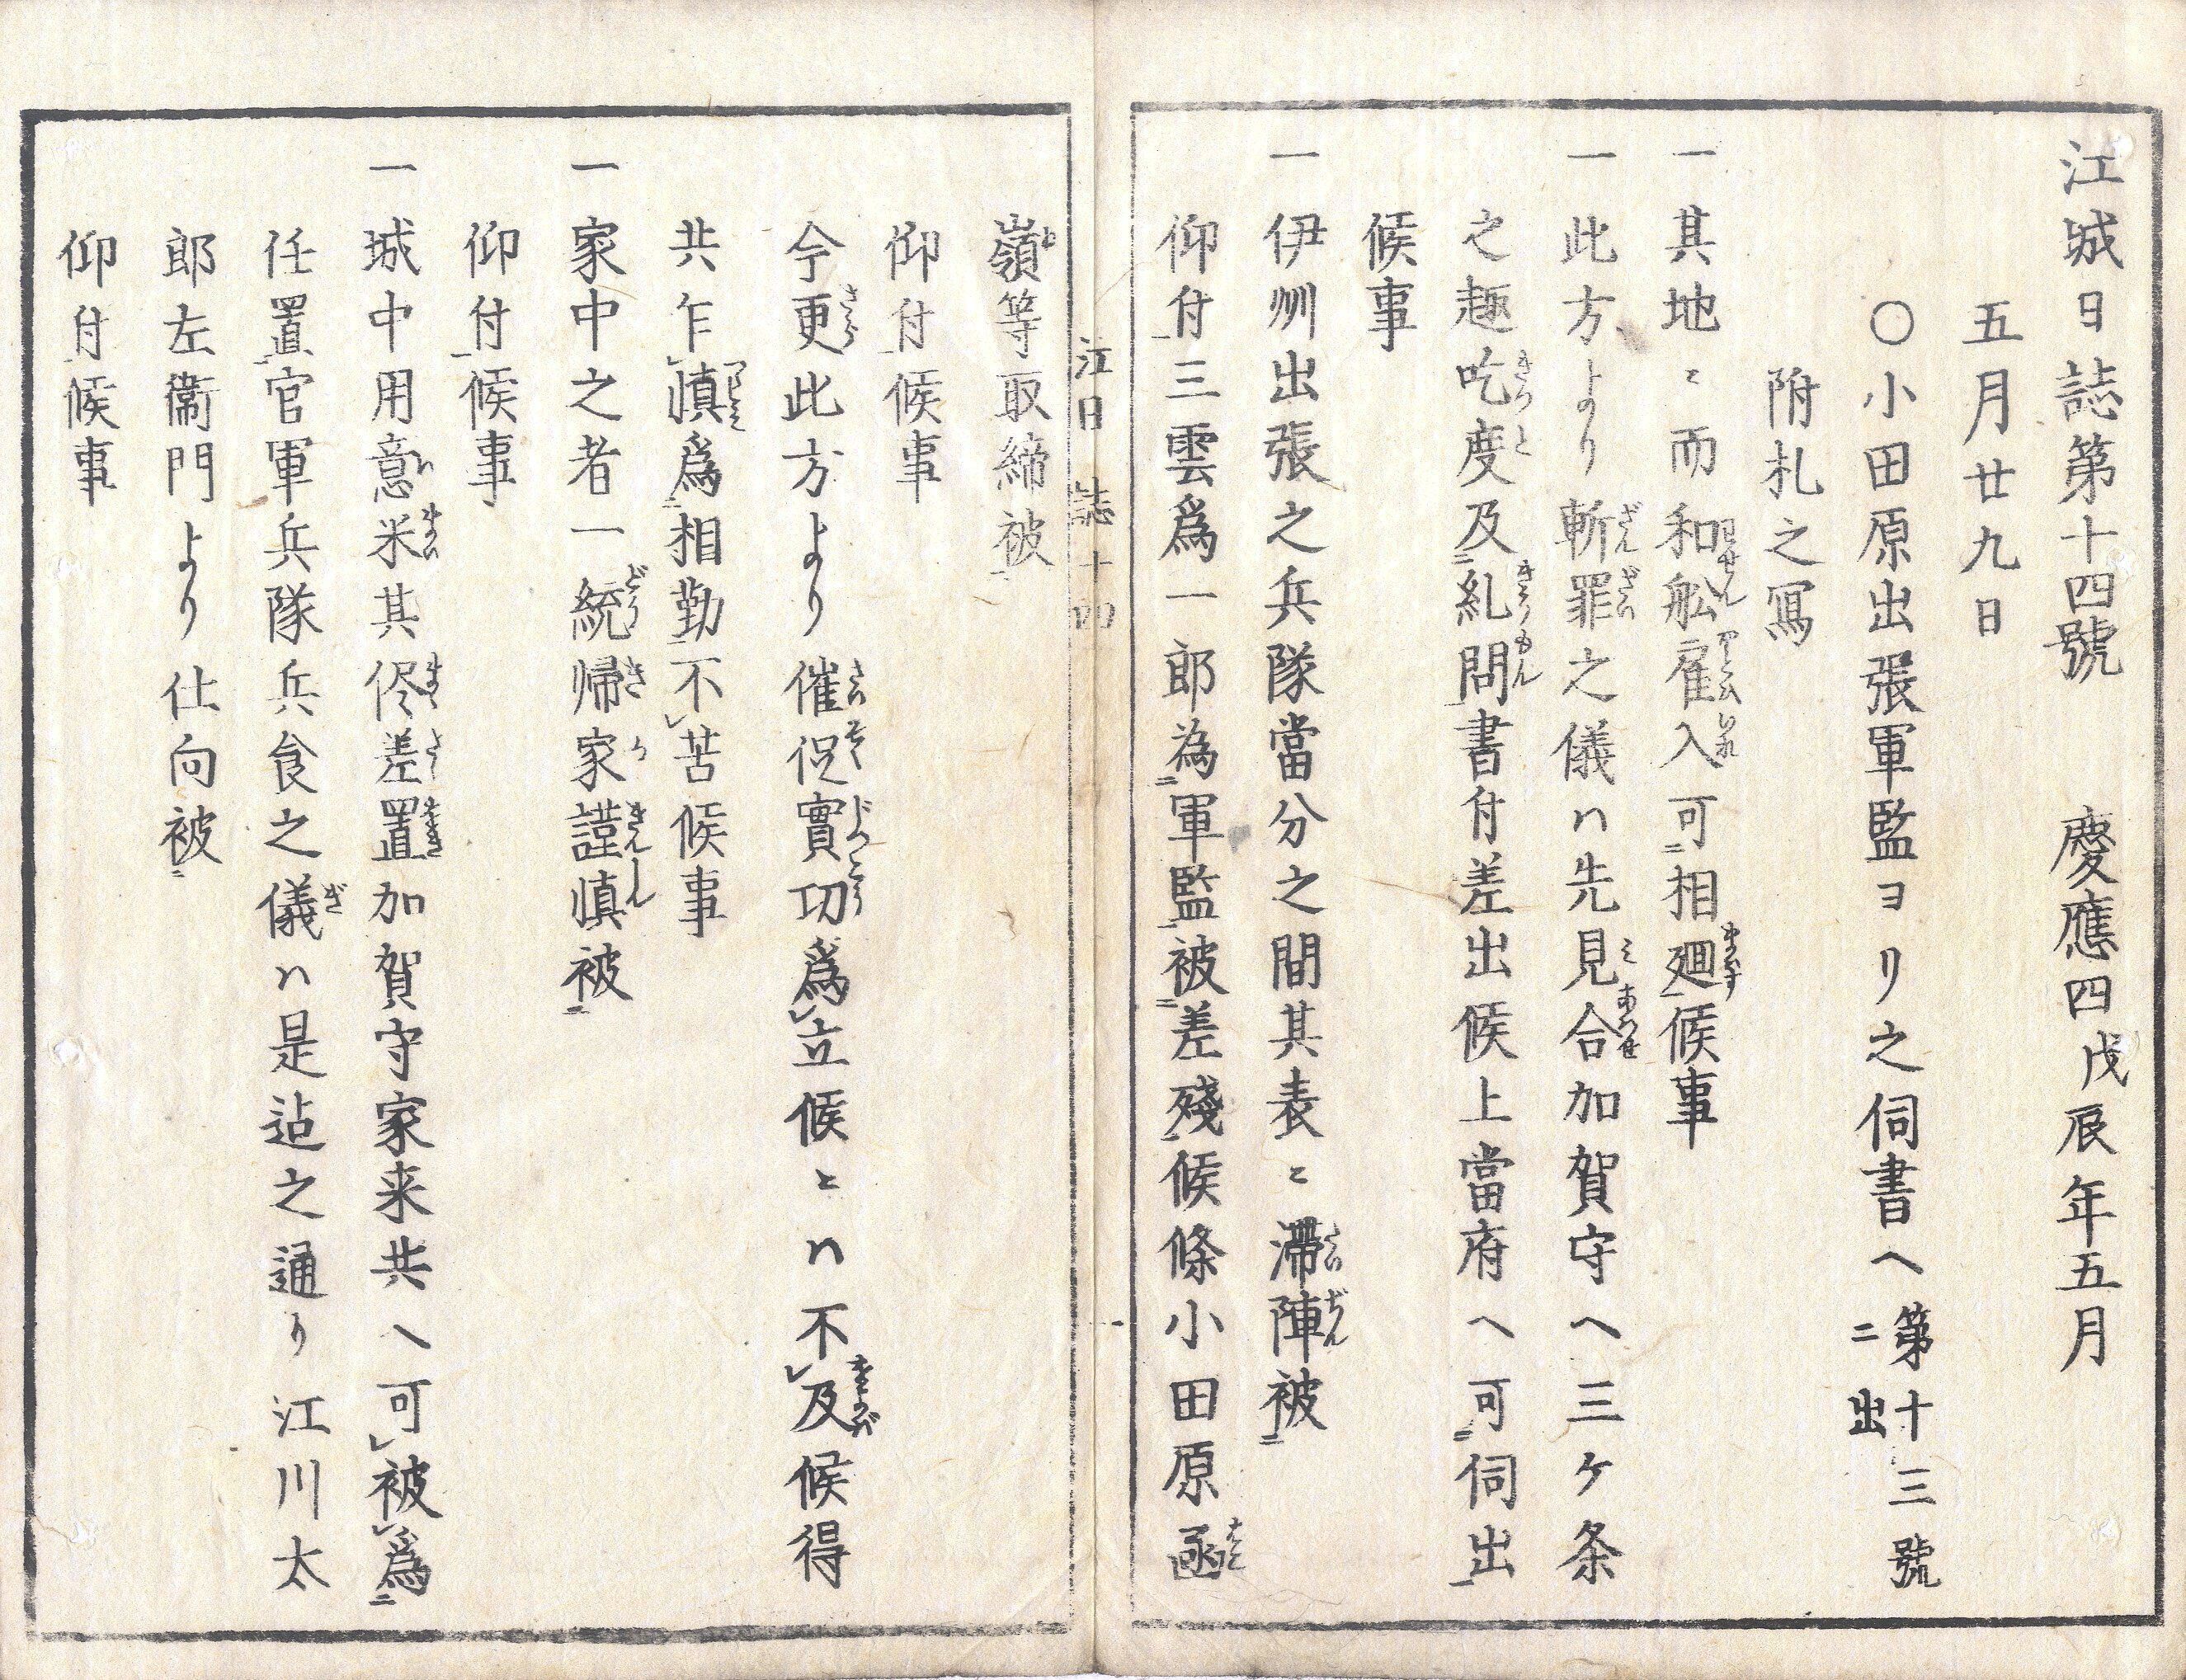 江城日誌第十四號　慶應四戊辰年五月
五月廿九日
〇小田原出張軍監ヨリ之伺書へ第十三號ニ出
附札之寫
一其地ニ而和舩雇入可相廻候事
一此方より斬罪之儀ハ先見合加賀守へ三ケ条
之趣吃度及糺問書付差出候上當府へ可伺出
候事
一伊州出張之兵隊當分之間其表ニ滞陣被
仰付三雲爲一郎為軍監被差殘候條小田原函
江日誌十四
嶺等取締被
仰付候事
今更此方より催促實功爲立候とハ不及候得
共乍慎爲相勤不苦候事
一家中之者一統帰家謹慎被
仰付候事
一城中用意米其侭差置加賀守家来共へ可被爲
任置官軍兵隊兵食之儀ハ是迠之通り江川太
郎左衞門より仕向被
仰付候事